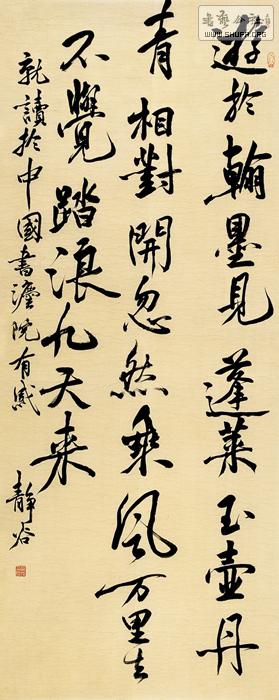 遊於翰墨見蓬莱玉壶丹
青相對開忽然乘風万里去
不覺踏浪九天来
就讀於中國書法院有感
靜谷
書藝公社
www.shufa.org